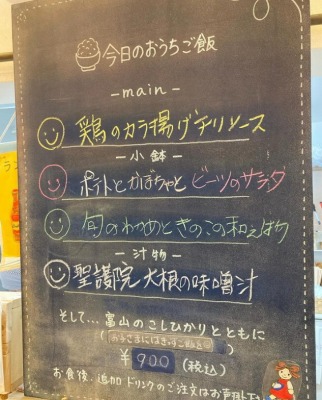 今日のおうちご飯
－main－
鶏のカラ揚げチリソース
－小鉢－
ポテトとかぼちゃとビーツのサラダ
旬のわかめときのこの和え物
－汁物－
聖護院大根の味噌汁
そして...富山のこしひかりとともに
¥900(税込)
お食後、追加ドリンクのご注文はお声掛け下